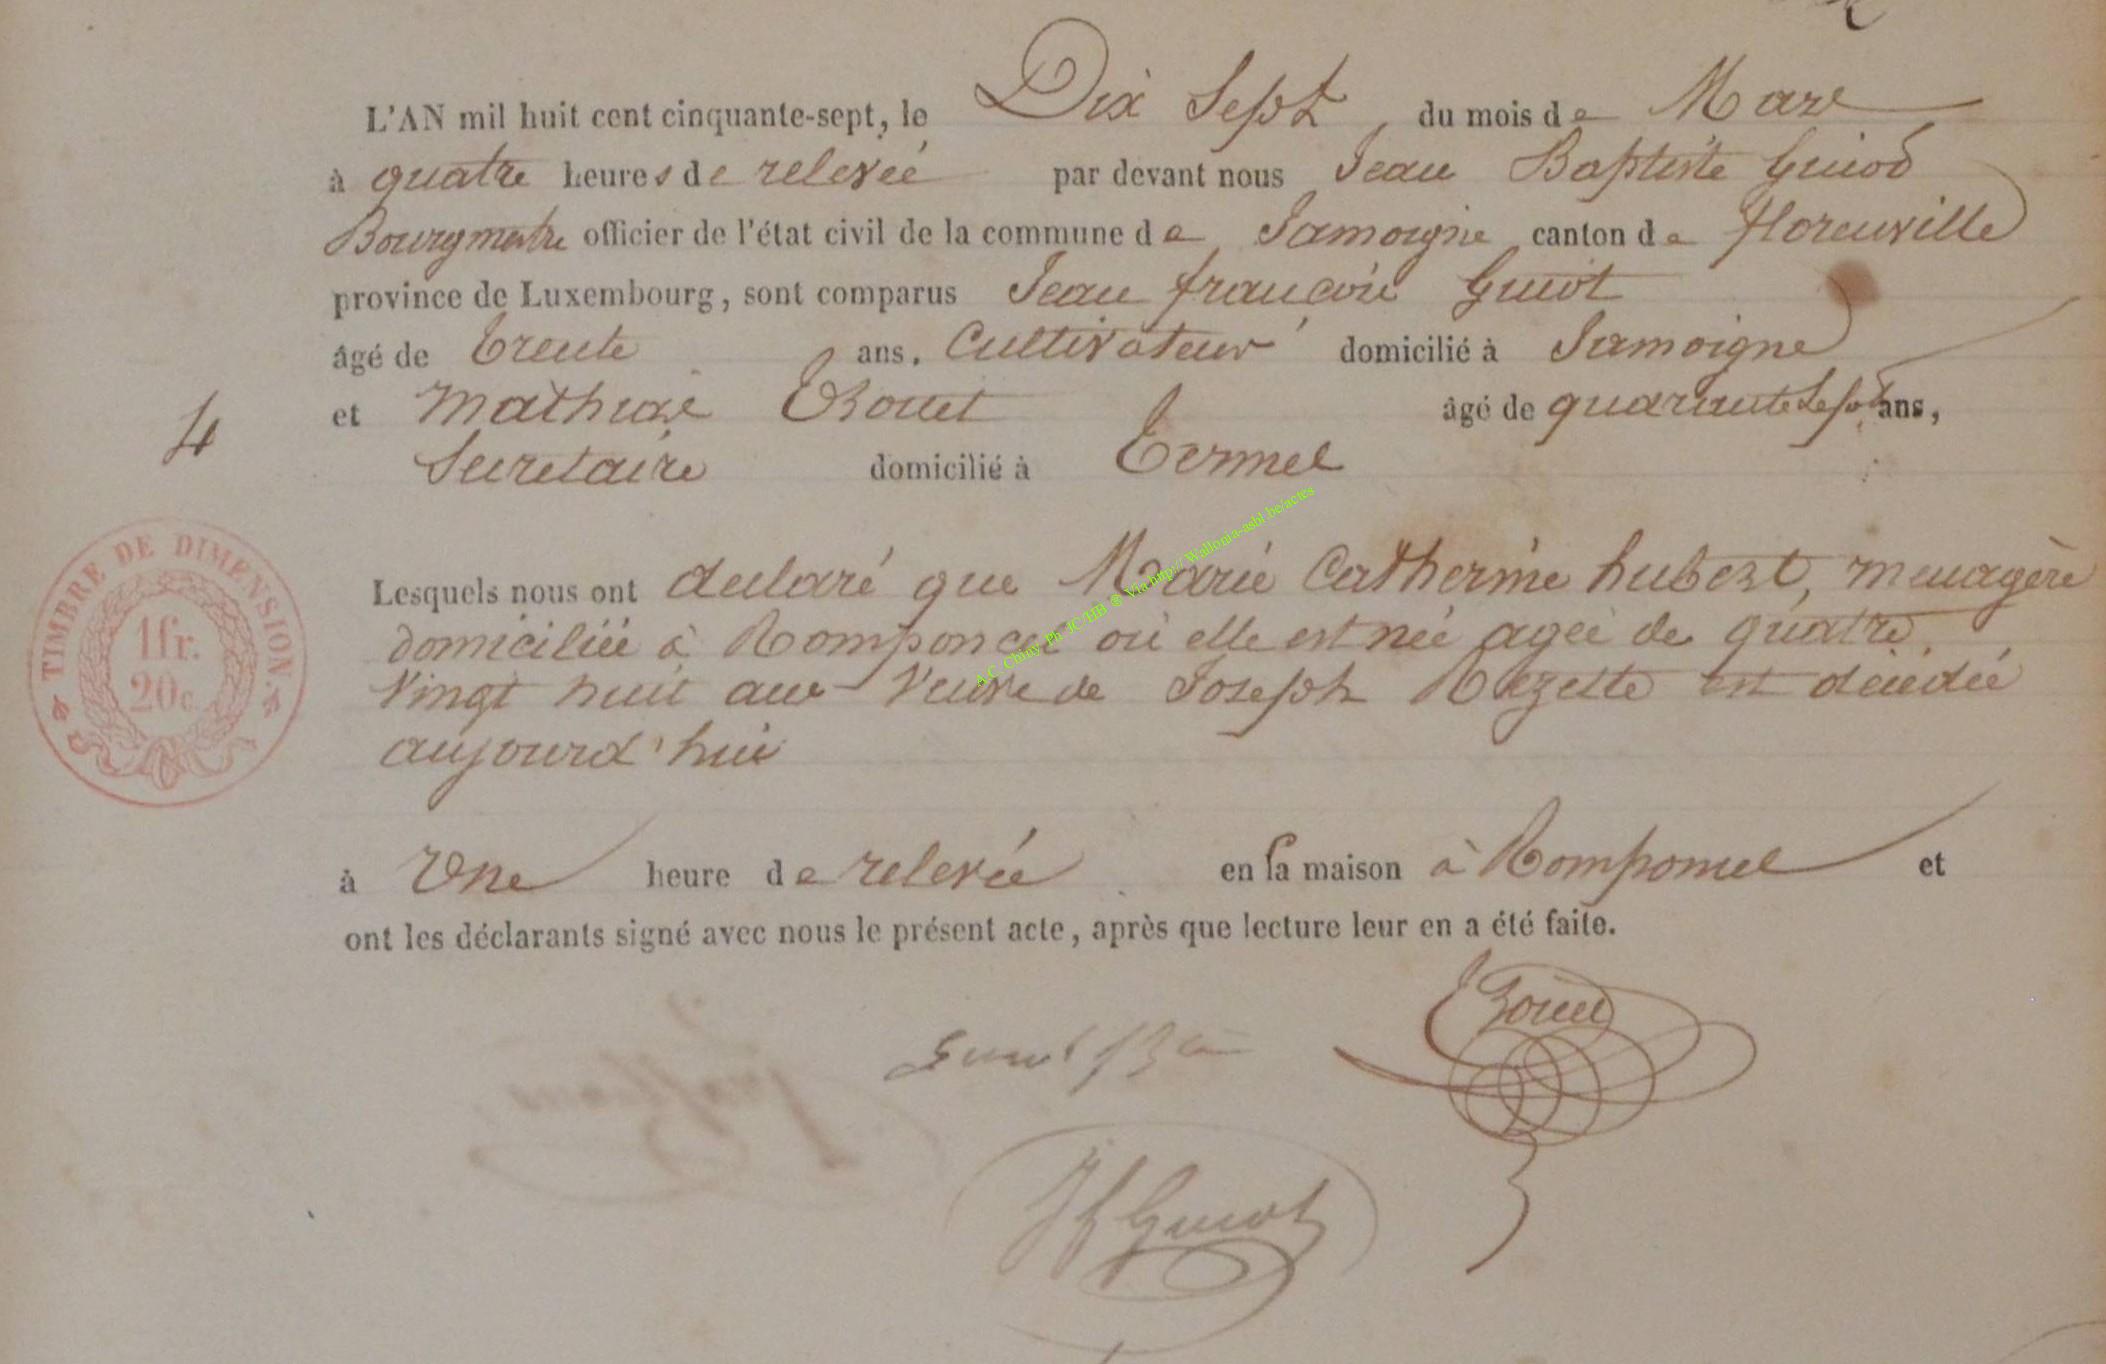 L'AN mil huit cent cinquante-sept, le Dix Sept, du mois de Mars
à quatre heures de relevée par devant nous Jean Baptiste Guiot
Bourgmestre officier de l'état civil de la commune de Jamoigne canton de florenville
province de Luxembourg, sont comparus Jean françois Guiot
âgé de Trente ans, Cultivateur domicilié à Jamoigne
et Mathias Thouet âgé de quarante Sept ans,
4
Secretaire domicilié à Termel
Lesquels nous ont declaré que Marie Catherine hubert, menagère
domiciliée à Romponcel où elle est née agée de quatre
Vingt huit ans Veuve de Joseph Rozette est décédée
aujourd'hui
TIMBRE DE DIMENSION.
1fr.
20c
A.C. Chiny Ph JC/HB @ Via http:// Wallonia-asbl.be/actes
à Une heure de relevée en sa maison à Romponcel et
ont les déclarants signé avec nous le présent acte, après que lecture leur en a été faite.
Thouet
Guiot
Jf Guiot